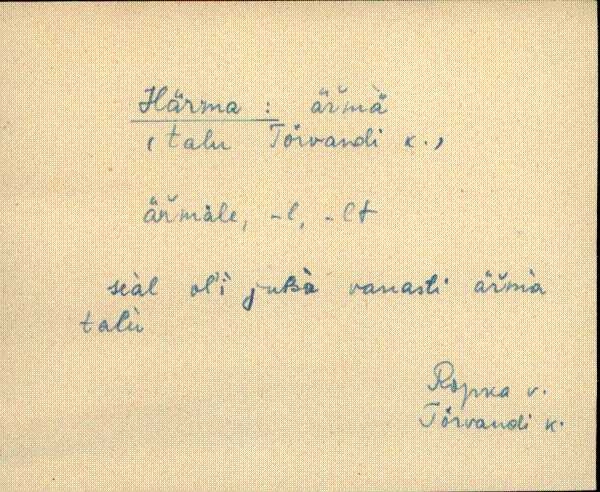 Härma : ärmä
(talu Tõrvandi k.,
ärmäle, -l, -lt
seàl ol'i juBà vanasti ärmà
talù
Ropka v.
Tõrvandi k.